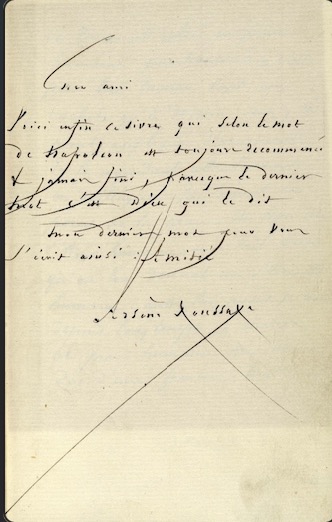 Cher ami
Voici enfin ce livre qui selon le mot
de Napoleon est toujours recommencé
& jamais fini, parceque le dernier
mot c'est Dieu qui le dit
Mon dernier mot pour vous
s'écrit ainsi : Amitié
Arsène Houssaye